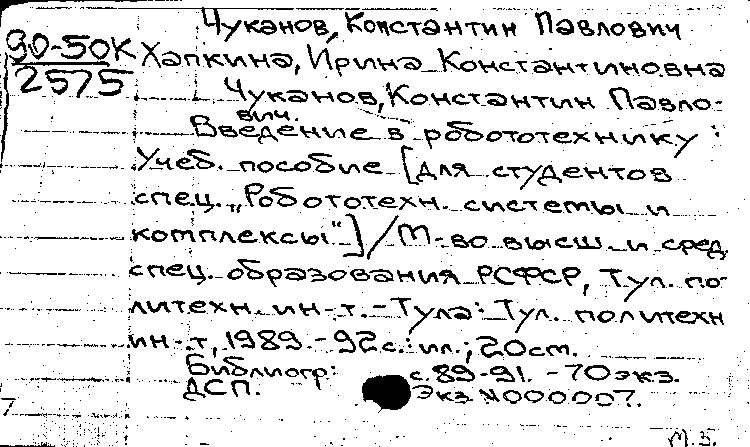 Чуканов, Константин Павлович
90-50К Хапкина, Ирина Константиновна
2575
Чуканов, Константин Павло-
вич.
Введение в робототехнику :
Учеб. пособие [для студентов
спец. „Робототехн. системы и
комплексы"] / М-во высш. и сред.
спец. образования РСФСР, Тул. по-
литехн. ин-т. - Тула: Тул. политехн
ин-т, 1989. - 92с.: ил.; 20см.
Библиогр: с. 89-91. - 70 экз.
ДСП. Экз N000007.
7
М.З.